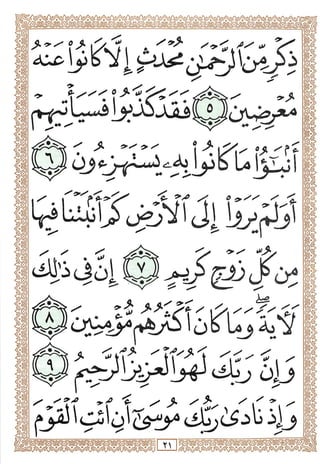 ذِكۡرٖ مِّنَ ٱلرَّحۡمَٰنِ مُحۡدَثٍ إِلَّا كَانُواْ عَنۡهُ
مُعۡرِضِينَ ٥ فَقَدۡ كَذَّبُواْ فَسَيَأۡتِيهِمۡ
أَنۢبَٰٓؤُاْ مَا كَانُواْ بِهِۦ يَسۡتَهۡزِءُونَ ٦
أَوَلَمۡ يَرَوۡاْ إِلَى ٱلۡأَرۡضِ كَمۡ أَنۢبَتۡنَا فِيهَا
مِن كُلِّ زَوۡجٖ كَرِيمٍ ٧ إِنَّ فِي ذَٰلِكَ
لَأٓيَةٗۖ وَمَا كَانَ أَكۡثَرُهُم مُّؤۡمِنِينَ ٨
وَإِنَّ رَبَّكَ لَهُوَ ٱلۡعَزِيزُ ٱلرَّحِيمُ ٩
وَإِذۡ نَادَىٰ رَبُّكَ مُوسَىٰٓ أَنِ ٱئۡتِ ٱلۡقَوۡمَ
٢١